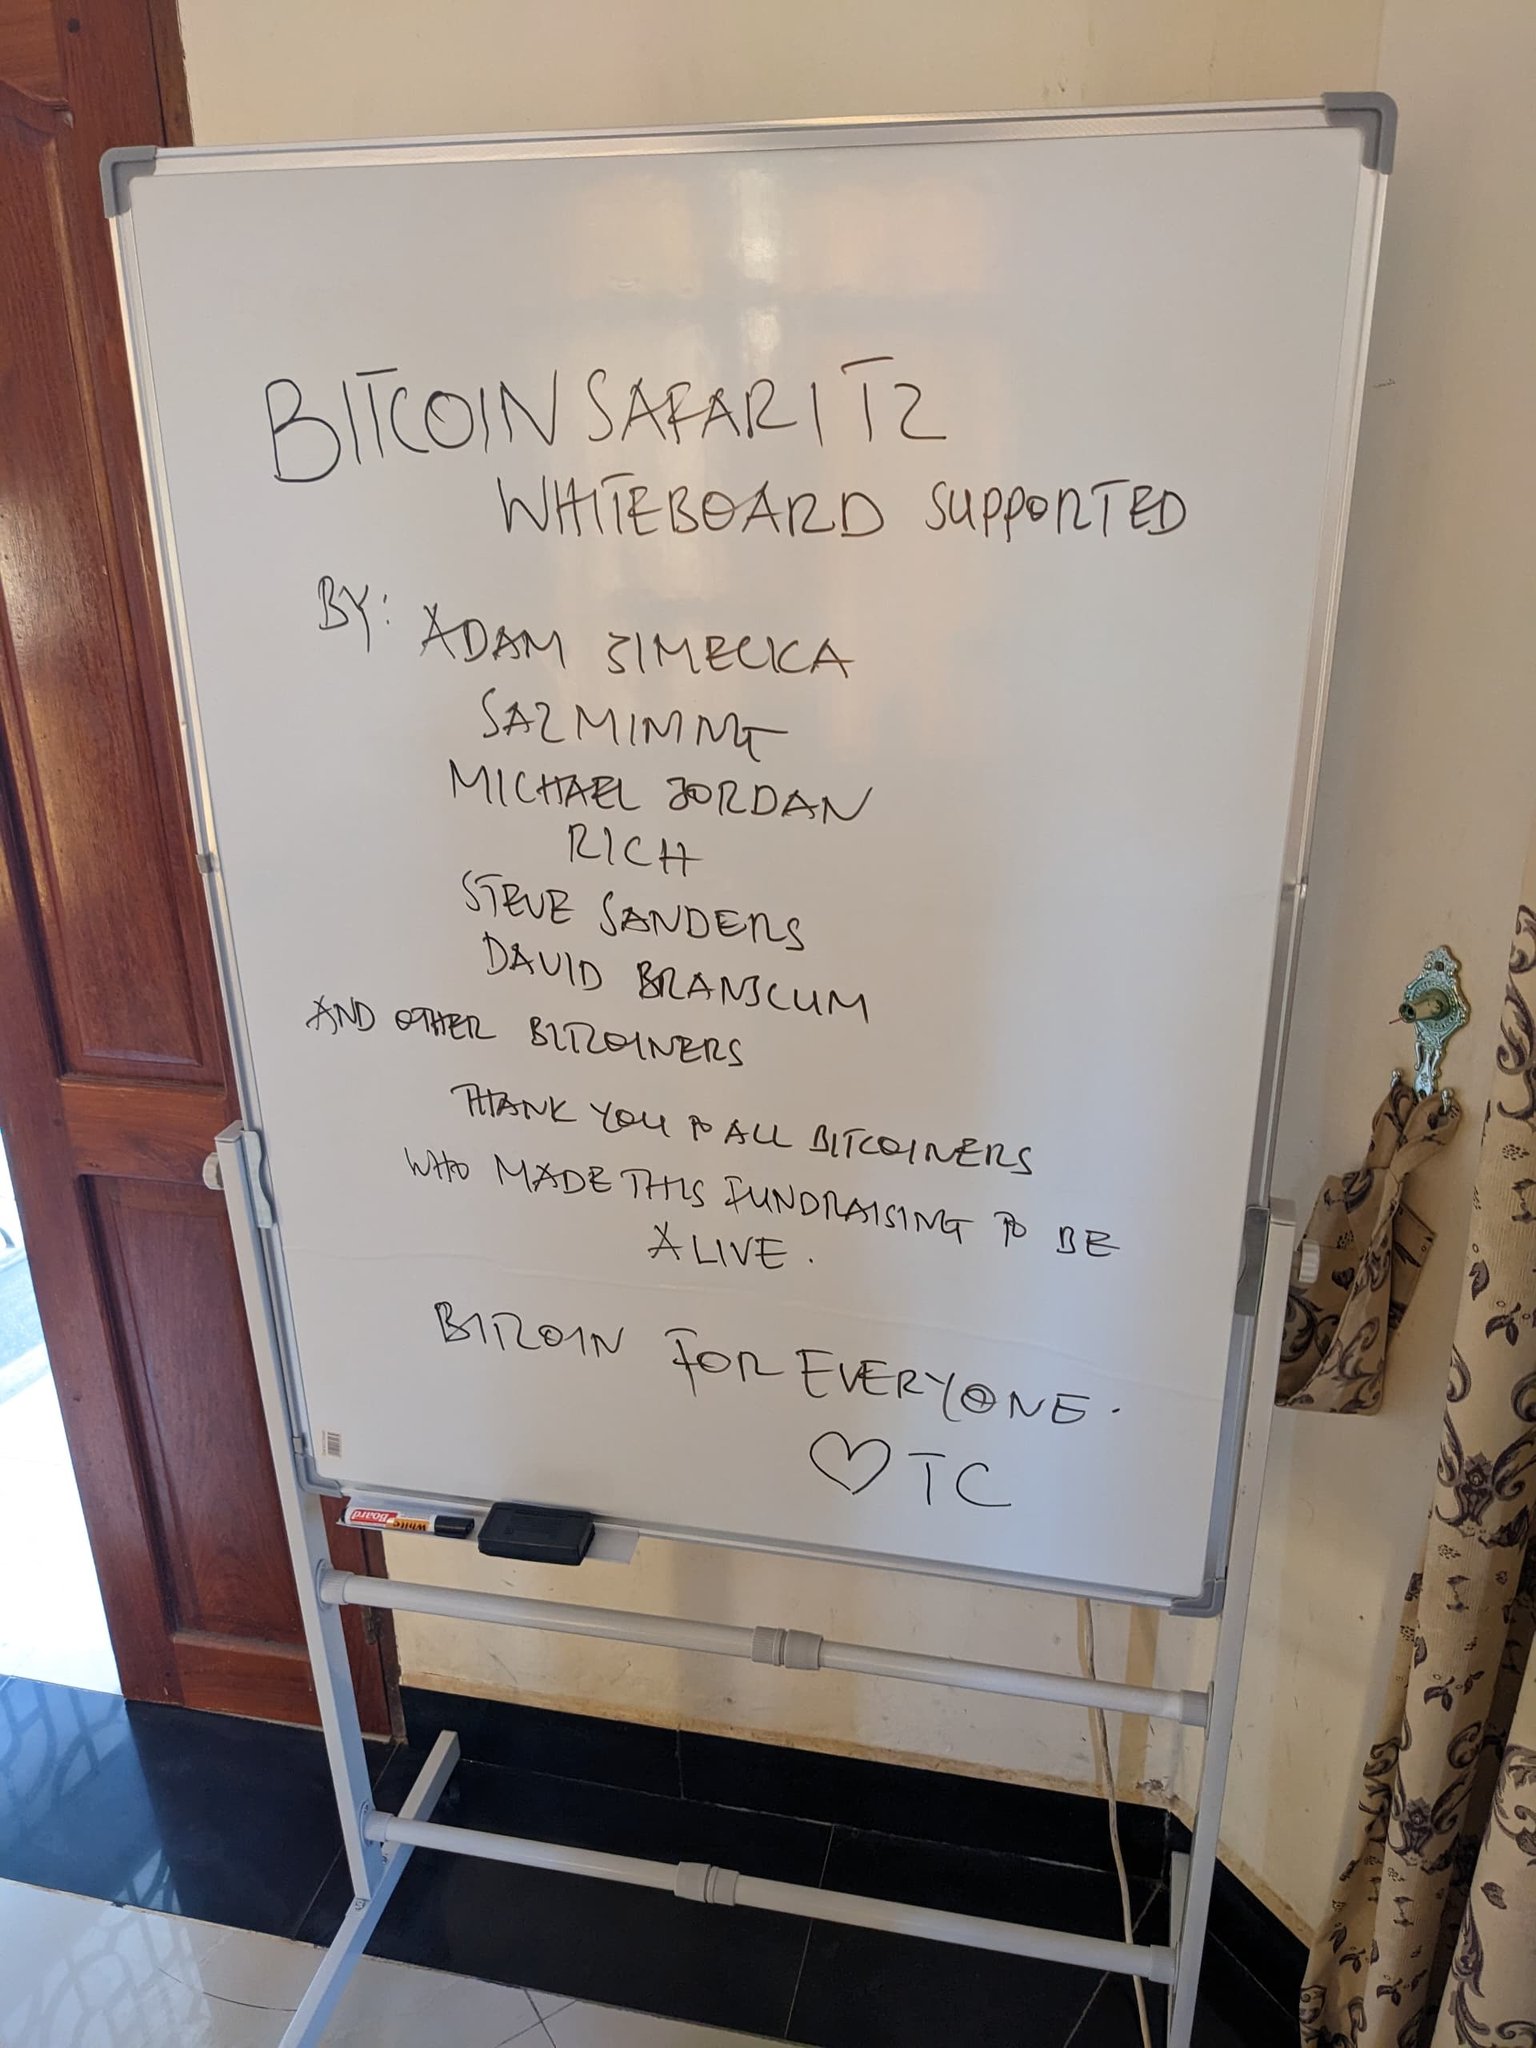 BITCOIN SAFARI TZ
WHITEBOARD SUPPORTED
BY: ADAM ZIMECKA
SAZMINING
MICHAEL JORDAN
RICH
STEVE SANDERS
DAVID BRANSCUM
AND OTHER BITCOINERS
THANK YOU TO ALL BITCOINERS
WHO MADE THIS FUNDRAISING TO BE
ALIVE.
BITCOIN FOR EVERYONE.
♡ TC
White Board